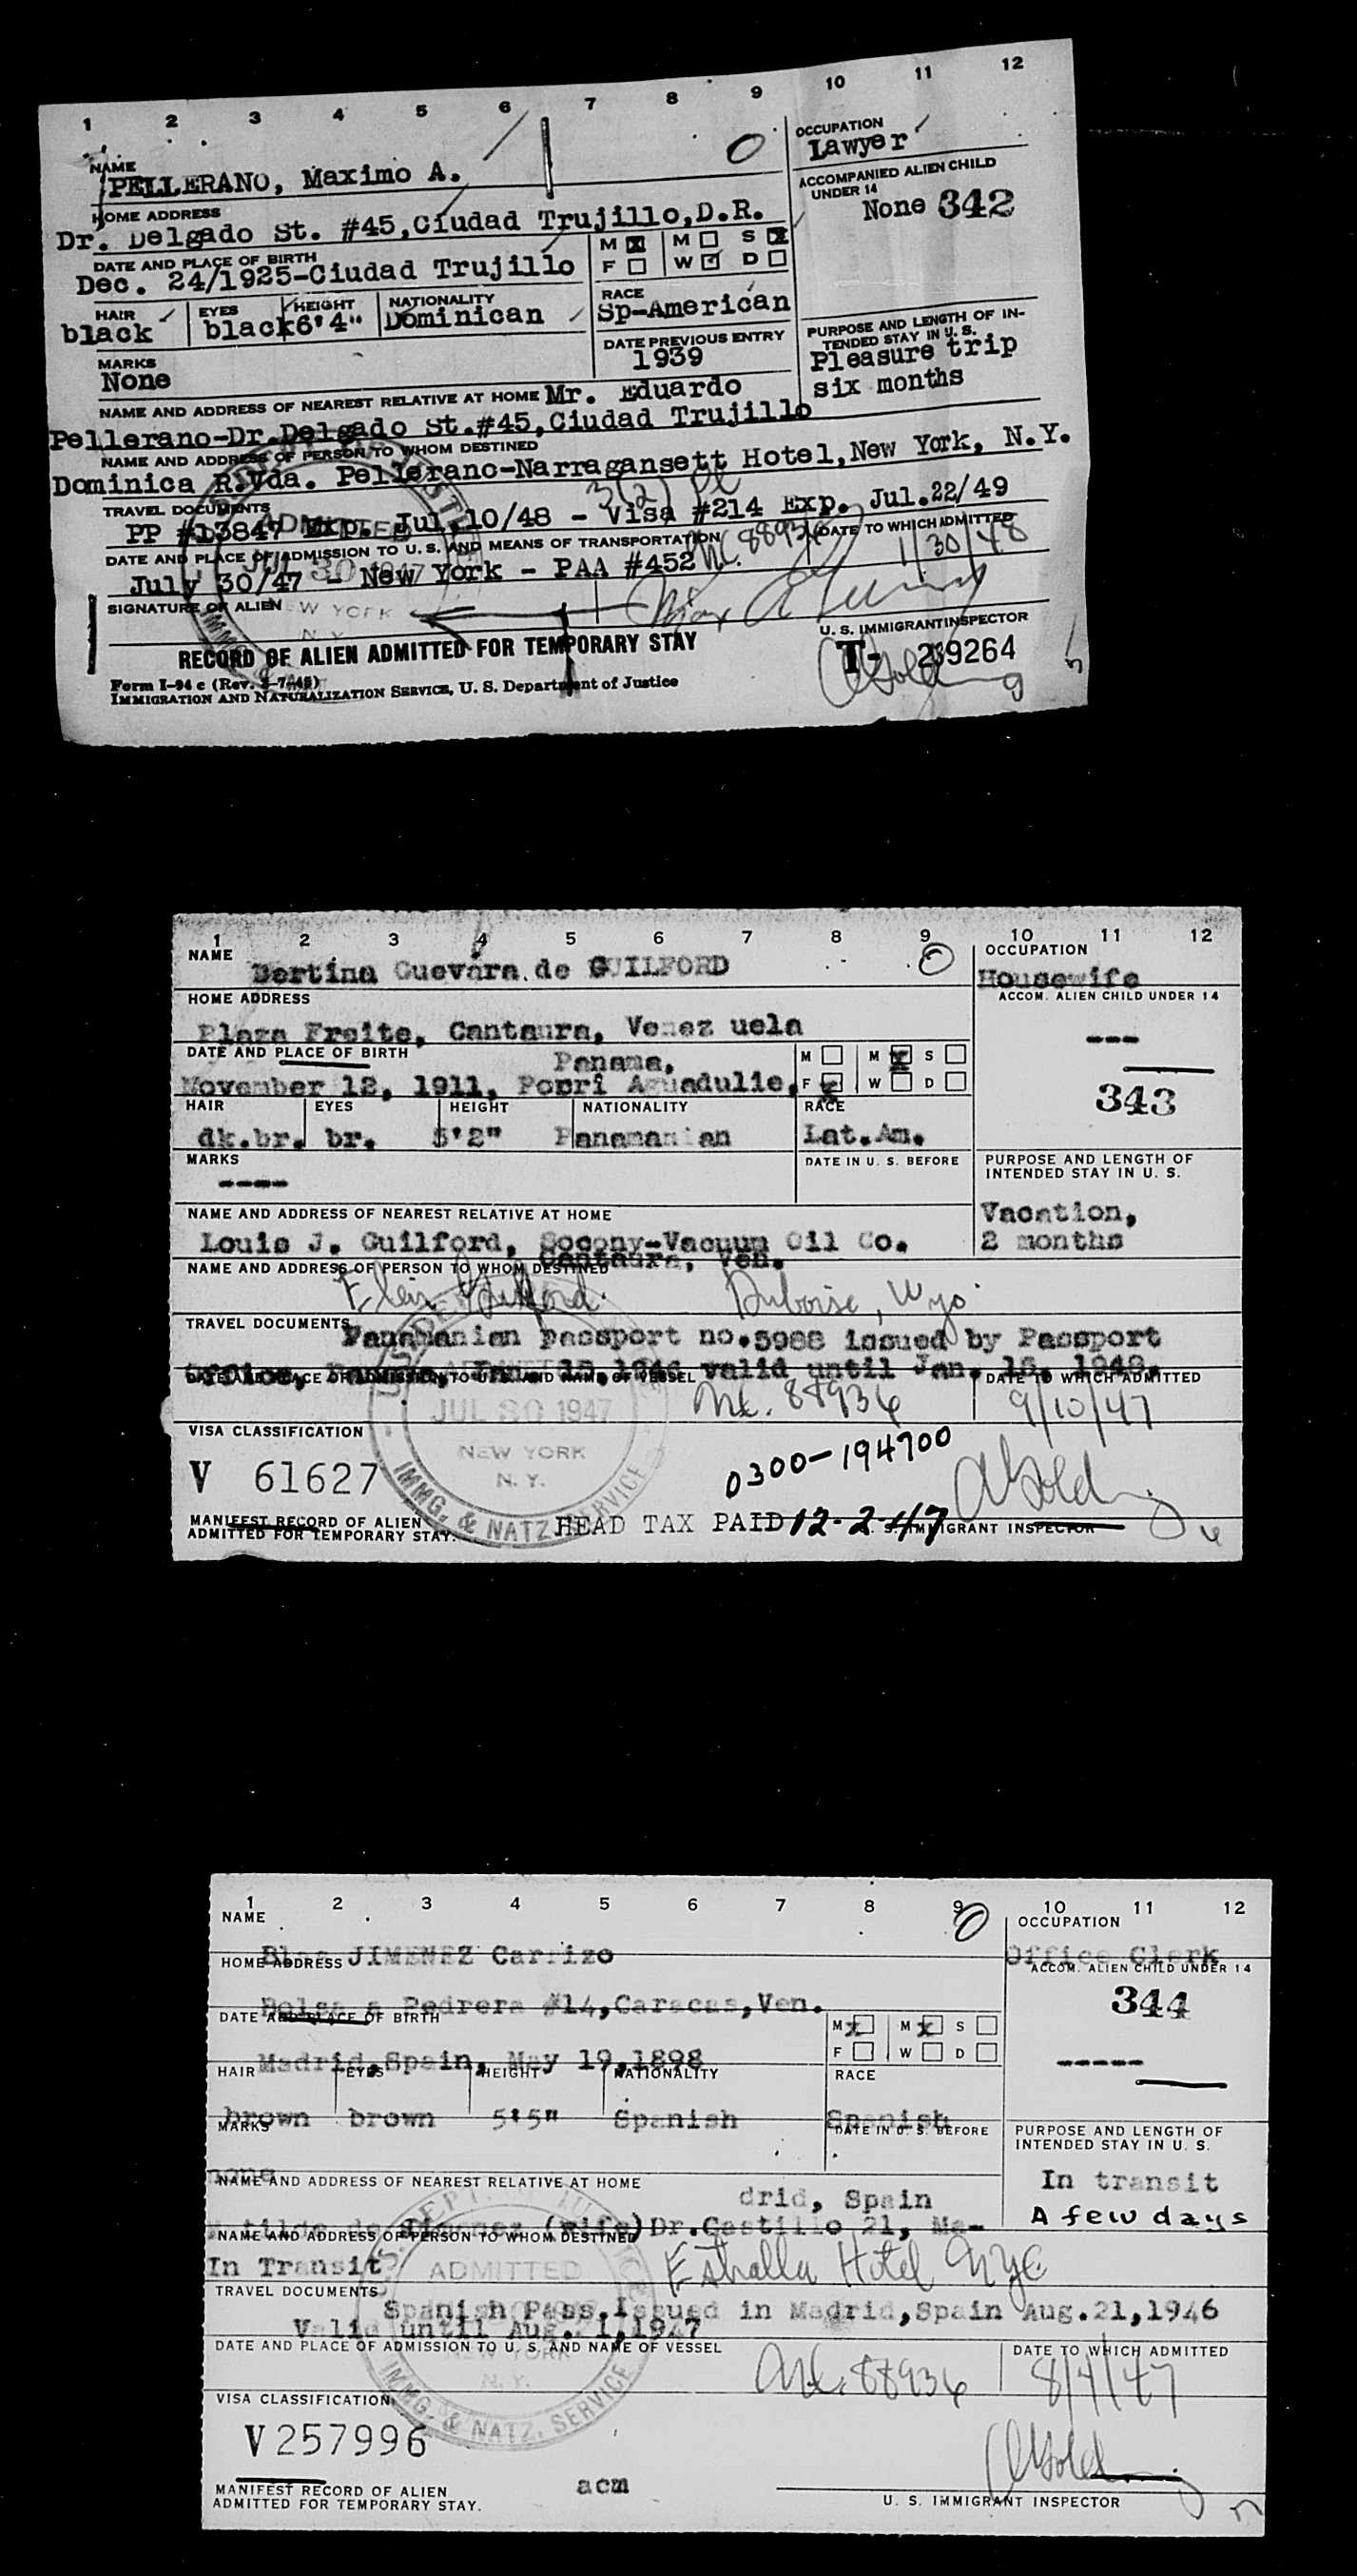 1 2 3 4 5 6 7 8 9 10 11 12
0
NAME
PELLERANO, Maximo A.
OCCUPATION
Lawyer
HOME ADDRESS
Dr. Delgado St. #45, Ciudad Trujillo, D.R.
ACCOMPANIED ALIEN CHILD
UNDER 14
None 342
DATE AND PLACE OF BIRTH
Dec. 24/1925-Ciudad Trujillo
M X M S X
F W D
HAIR EYES HEIGHT NATIONALITY RACE
black black 6'4" Dominican Sp-American
MARKS
None
DATE PREVIOUS ENTRY
1939
PURPOSE AND LENGTH OF IN-
TENDED STAY IN U. S.
Pleasure trip
six months
NAME AND ADDRESS OF NEAREST RELATIVE AT HOME Mr. Eduardo
Pellerano-Dr.Delgado St.#45, Ciudad Trujillo
NAME AND ADDRESS OF PERSON TO WHOM DESTINED
Dominica R.Vda. Pellerano-Narragansett Hotel, New York, N.Y.
3(2)
TRAVEL DOCUMENTS
PP #13847 Exp. Jul.10/48 - Visa #214 Exp. Jul.22/49
DATE AND PLACE OF ADMISSION TO U. S. AND MEANS OF TRANSPORTATION
July 30/47 - New York - PAA #452
88936
DATE TO WHICH ADMITTED
1/30/48
ADMITTED
JUL 30 1947
NEW YORK
N. Y.
SIGNATURE OF ALIEN
RECORD OF ALIEN ADMITTED FOR TEMPORARY STAY
U. S. IMMIGRANT INSPECTOR
T- 239264
Form I-94 c
IMMIGRATION AND NATURALIZATION SERVICE, U. S. Department of Justice
1 2 3 4 5 6 7 8 9 10 11 12
0
NAME
Bertina Guevara de GUILFORD
OCCUPATION
Housewife
HOME ADDRESS
Plaza Freite, Cantaura, Venez uela
ACCOM. ALIEN CHILD UNDER 14
----
343
DATE AND PLACE OF BIRTH
Panama,
November 12, 1911, Pocri Aguadulie,
M M X S
F X W D
HAIR EYES HEIGHT NATIONALITY RACE
dk.br. br. 5'2" Panamanian Lat.Am.
MARKS
----
DATE IN U. S. BEFORE
PURPOSE AND LENGTH OF
INTENDED STAY IN U. S.
Vacation,
2 months
NAME AND ADDRESS OF NEAREST RELATIVE AT HOME
Louis J. Guilford, Socony-Vacuum Oil Co.
Cantaura, Ven.
NAME AND ADDRESS OF PERSON TO WHOM DESTINED
Guilford. Duboise, Wyo.
TRAVEL DOCUMENTS
Panamanian passport no.5988 issued by Passport
Office, Panama, Jan. 15, 1946 valid until Jan. 15, 1948.
DATE AND PLACE OF ADMISSION TO U. S. AND NAME OF VESSEL
88936
DATE TO WHICH ADMITTED
9/10/47
JUL 30 1947
NEW YORK
N. Y.
IMMG. & NATZ. SERVICE
VISA CLASSIFICATION
V 61627
0300-194700
MANIFEST RECORD OF ALIEN
ADMITTED FOR TEMPORARY STAY.
HEAD TAX PAID 12-2-47
U. S. IMMIGRANT INSPECTOR
1 2 3 4 5 6 7 8 9 10 11 12
0
NAME
Blas JIMENEZ Carrizo
OCCUPATION
Office Clerk
HOME ADDRESS
Bolsa a Pedrera #14, Caracas, Ven.
ACCOM. ALIEN CHILD UNDER 14
344
-----
DATE AND PLACE OF BIRTH
Madrid, Spain, May 19, 1898
M X M X S
F W D
HAIR EYES HEIGHT NATIONALITY RACE
brown brown 5'5" Spanish Spanish
MARKS
none
DATE IN U. S. BEFORE
PURPOSE AND LENGTH OF
INTENDED STAY IN U. S.
In transit
A few days
NAME AND ADDRESS OF NEAREST RELATIVE AT HOME
drid, Spain
de Jimenez (wife) Dr.Castillo 21, Ma-
NAME AND ADDRESS OF PERSON TO WHOM DESTINED
In Transit Hotel NYC
ADMITTED
TRAVEL DOCUMENTS
Spanish Pass. Issued in Madrid, Spain Aug. 21, 1946
Valid until Aug. 21, 1947
DATE AND PLACE OF ADMISSION TO U. S. AND NAME OF VESSEL
88936
DATE TO WHICH ADMITTED
8/4/47
NEW YORK
N. Y.
IMMG. & NATZ. SERVICE
VISA CLASSIFICATION
V 257996
MANIFEST RECORD OF ALIEN
ADMITTED FOR TEMPORARY STAY.
acm
U. S. IMMIGRANT INSPECTOR